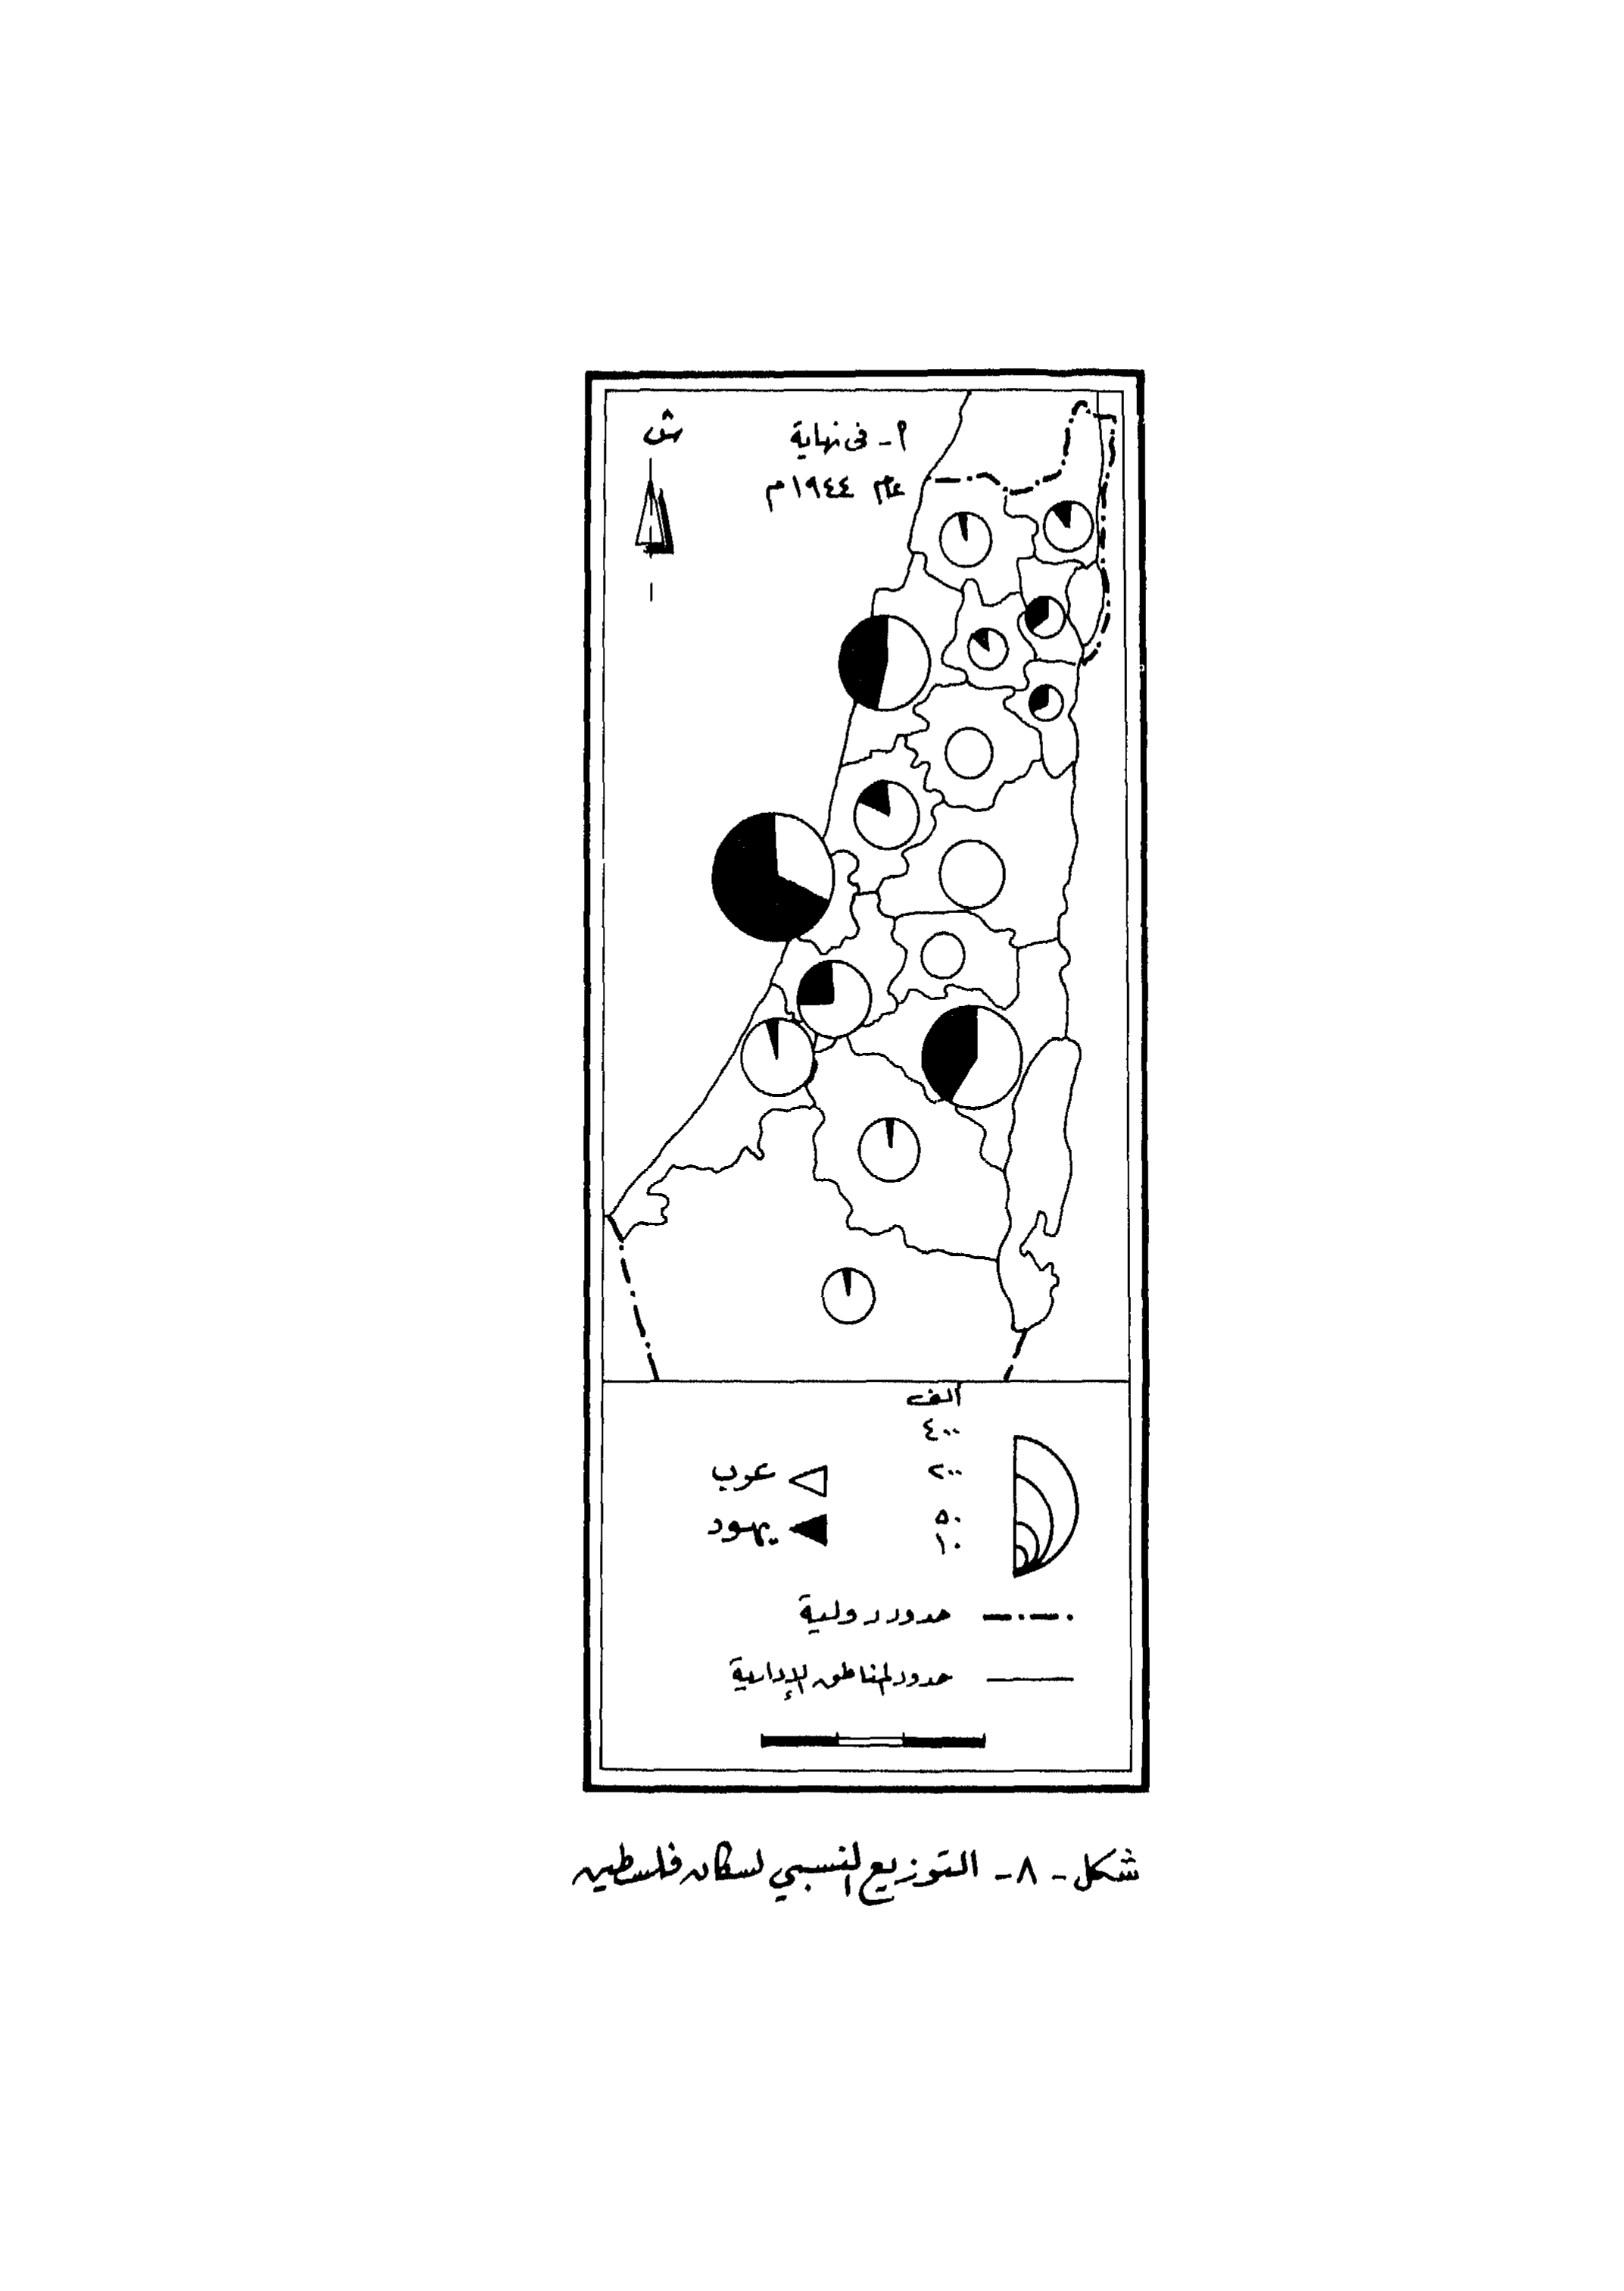 ش
أ - في نهاية
عام ١٩٤٤م
ألف
٤٠٠
٢٠٠
٥٠
١٠
عرب
يهود
حدود دولية
حدود المناطق الإدارية
شكل - ٨ - التوزيع النسبي لسكان فلسطين